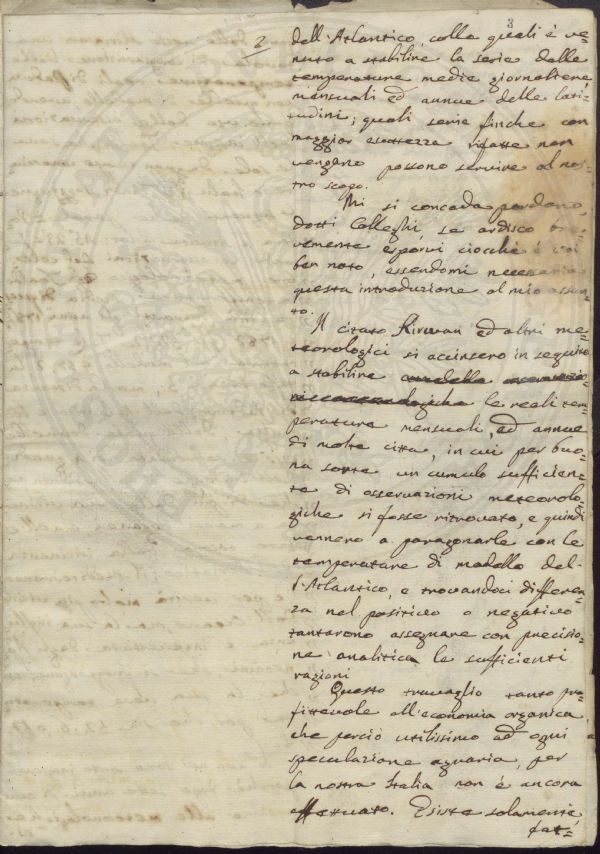 3
2
dell'Atlantico, colla quali è ve=
nuto a stabilire la serie delle
temperature medie giornaliere,
mensuali ed annue delle lati=
tudini; quali serie finche con
maggior esattezza rifatte non
vengano possono servire al nos=
tro scopo.
Mi si conceda perdono,
dotti Colleghi, se ardisco bre=
vemente esporvi ciocchè è voi
ben noto, essendomi necessaria
questa introduzione al mio assun=
to.
Il citato Kirwan ed altri me=
teorologici si accinsero in seguito
a stabilire
le reali tem=
perature mensuali, ed annue
di molte citta, in cui per buo=
na sorte un cumulo sufficien=
te di osservazioni meteorolo=
giche si fosse ritrovato, e quindi
vennero a paragonarle con le
temperature di modello del=
l'Atlantico, e trovandoci differen=
za nel positivo o negativo
tentarono assegnare con precisio=
ne analitica le sufficienti
ragioni
Questo travaglio tanto pro=
fittevole all'economia organica,
che perciò utilissimo ad ogni
speculazione agraria, per
la nostra Italia non è ancora
effettuato. Esiste solamente,
fat=